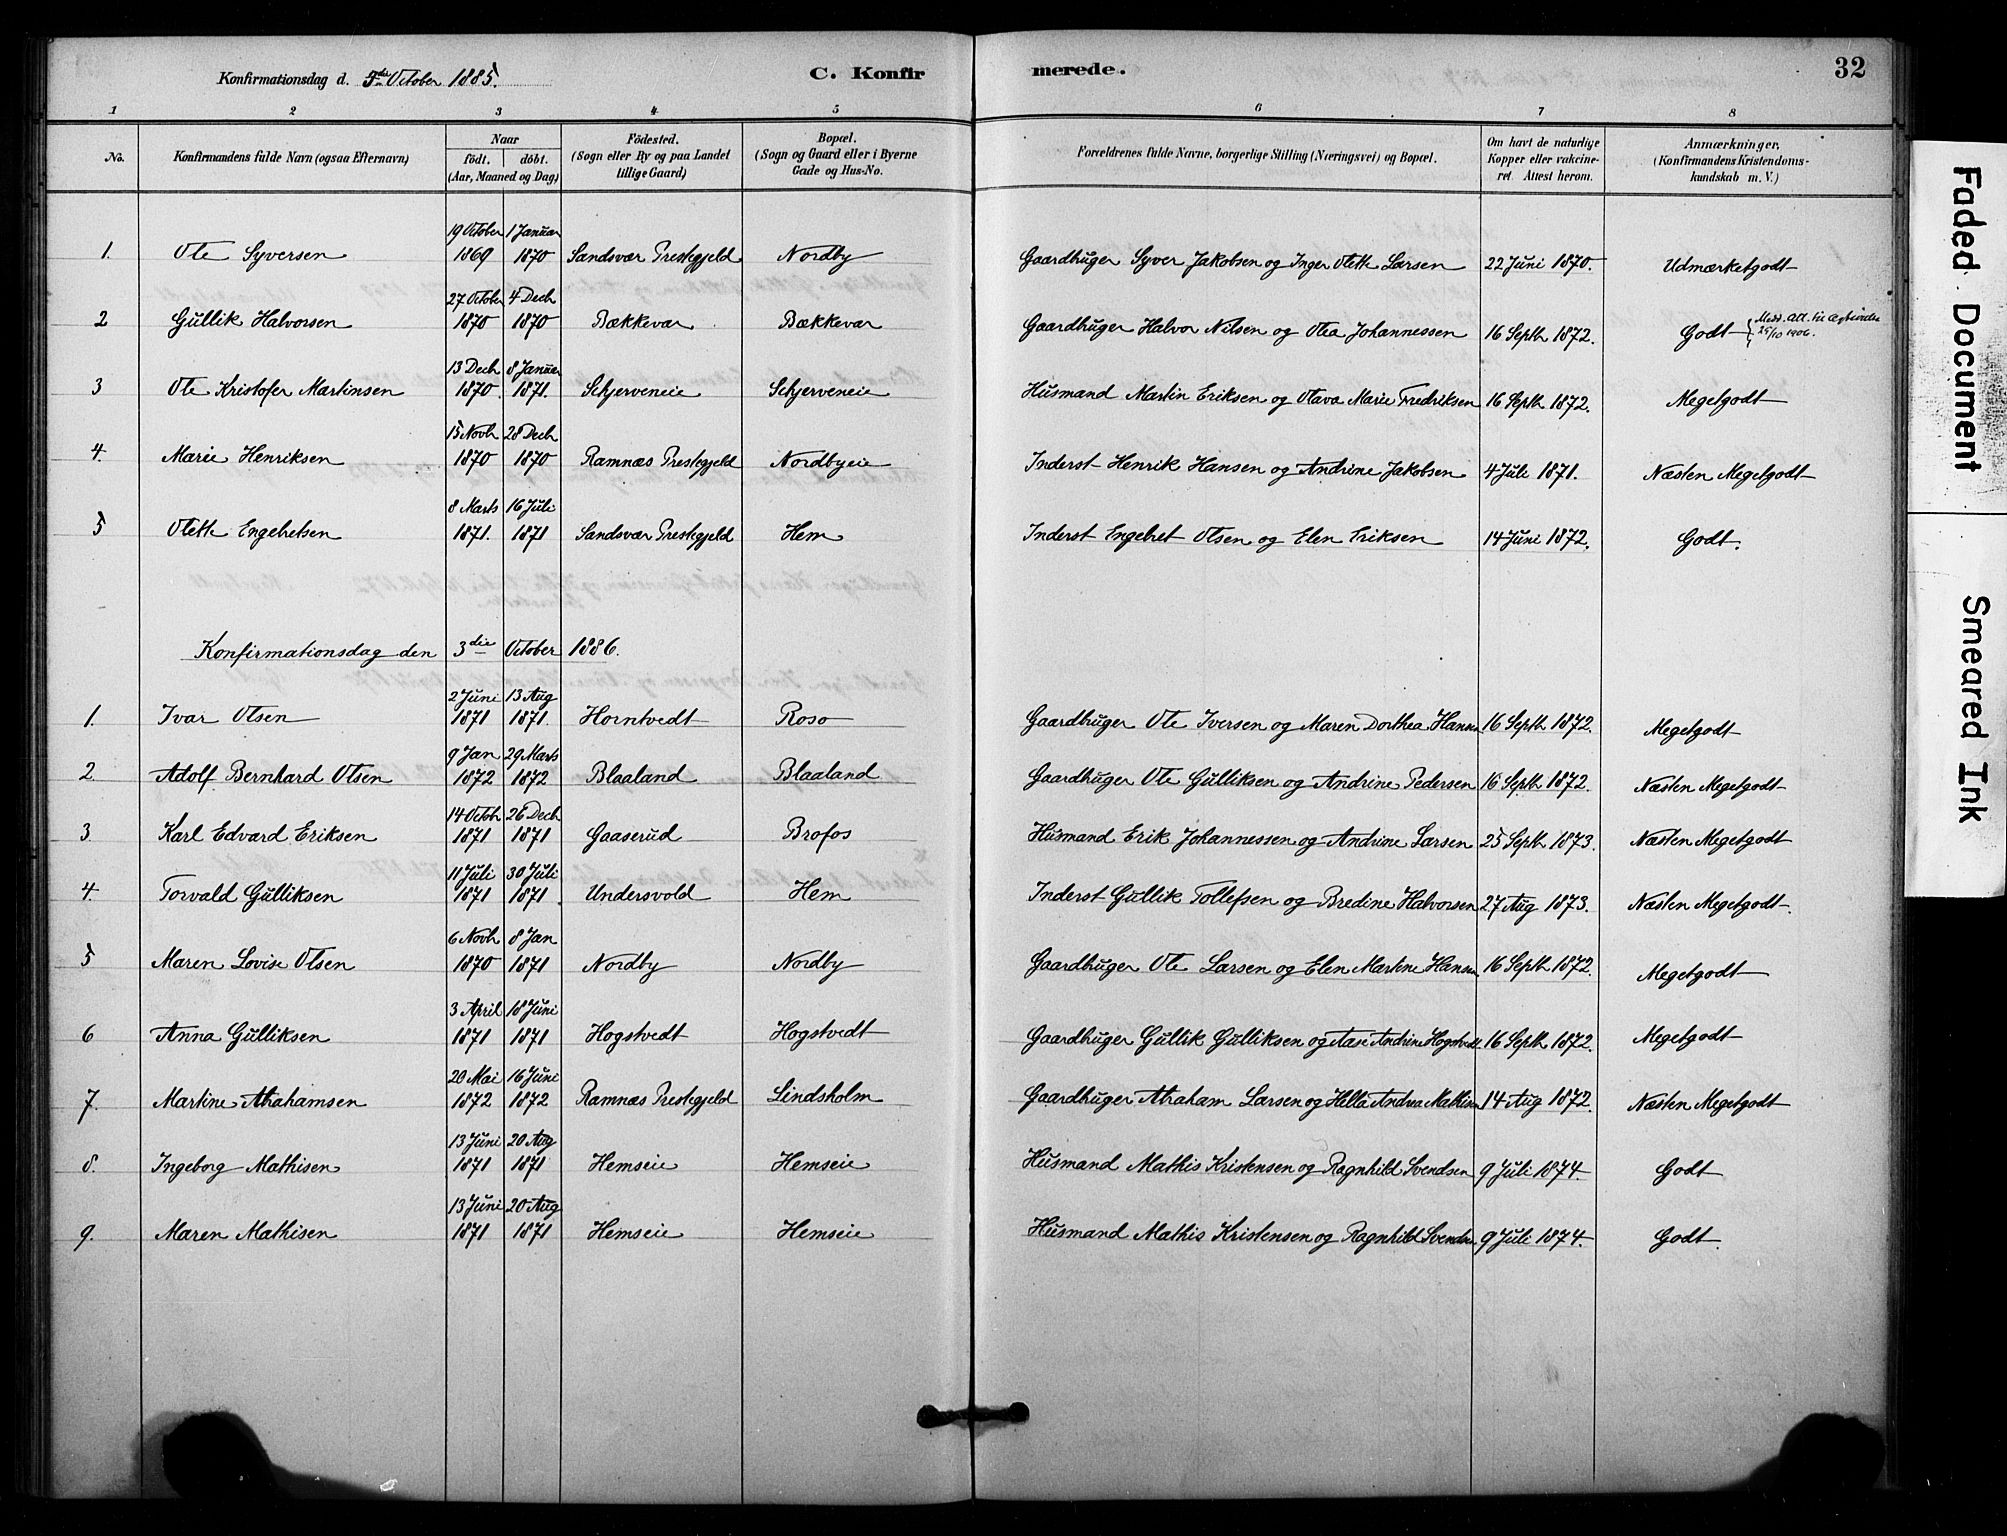 Konfirmationsdag d. 5te October 1885.
C. Konfirmerede.
32
1 2 3 4 5 6 7 8
No.
Konfirmandens fulde Navn (ogsaa Efternavn)
Naar
födt. döbt.
(Aar, Maaned og Dag)
Födested.
(Sogn eller By og paa Landet
tillige Gaard)
Bopæl.
(Sogn og Gaard eller i Byerne
Gade og Hus-No.
Forældrenes fulde Navne, borgerlige Stilling (Næringsvei) og Bopæl.
Om havt de naturlige
Kopper eller vakcine-
ret. Attest herom.
Anmærkninger,
(Konfirmandens Kristendoms-
kundskab m. V.)
19 October 1 Januar
1. Ole Syversen 1869 1870 Sandsvær Prestegjeld Nordby Gaardbruger Syver Jakobsen og Inger Olette Larsen 22 Juni 1870. Udmærketgodt
27 October 4 Decb
2 Gullik Halvorsen 1870 1870 Bækkevar Bækkevar Gaardbruger Halvor Nilsen og Olea Johannessen 16 Septb 1872. Godt
25/10 1906.
13 Decb 8 Januar
3 Ole Kristofer Martinsen 1870. 1871. Schjerveneie Schjerveneie Husmand Martin Eriksen og Olava Marie Fredriksen 16 Septb 1872. Megetgodt
15 Novb 28 Decb
4. Marie Henriksen 1870 1870 Ramnæs Prestegjeld Nordbyeie Inderst Henrik Hansen og Andrine Jakobsen 4 Juli 1871. Næsten Megetgodt
8 Marts 16 Juli
5 Olette Engebretsen 1871. 1871 Sandsvær Prestegjeld Hem Inderst Engebret Olsen og Elen Eriksen 14 Juni 1872. Godt.
Konfirmationsdag den 3die October 1886.
2 Juni 13 Aug
1. Ivar Olsen 1871 1871. Horntvedt Roso Gaardbruger Ole Iversen og Maren Dorthea Hansen 16 Septb 1872. Megetgodt
9 Jan 29 Marts
2 Adolf Bernhard Olsen 1872 1872 Blaaland Blaaland Gaardbruger Ole Gulliksen og Andrine Pedersen 16 Septb 1872. Næsten Megetgodt
14 Octob 26 Decb
3. Karl Edvard Eriksen 1871 1871 Gaaserud Brofos Husmand Erik Johannessen og Andrine Larsen 25 Septb 1873. Næsten Megetgodt
11 Juli 30 Juli
4. Torvald Gulliksen 1871 1871. Undersvold Hem Inderst Gullik Tollefsen og Bredine Halvorsen 27 Aug 1873. Næsten Megetgodt.
6 Novb 8 Jan
5 Maren Lovise Olsen 1870 1871 Nordby Nordby Gaardbruger Ole Larsen og Elen Martine Hansen 16 Septb 1872. Megetgodt
3 April 18 Juni
6 Anna Gulliksen 1871 1871 Hogstvedt Hogstvedt Gaardbruger Gullik Gulliksen og Aase Andrine Hogstvedt 16 Septb 1872. Megetgodt
20 Mai 16 Juni
7. Martine Abrahamsen 1872 1872 Ramnæs Prestegjeld Lindsholm Gaardbruger Abraham Larsen og Hella Andrea Mathisen 14 Aug 1872. Næsten Megetgodt
13 Juni 20 Aug
8. Ingeborg Mathisen 1871 1871 Hemseie Hemseie Husmand Mathis Kristensen og Ragnhild Svendsen 9 Juli 1874. Godt
13 Juni 20 Aug
9. Maren Mathisen 1871 1871 Hemseie Hemseie Husmand Mathis Kristensen og Ragnhild Svendsen 9 Juli 1874. Godt.
Faded Document
Smeared Ink